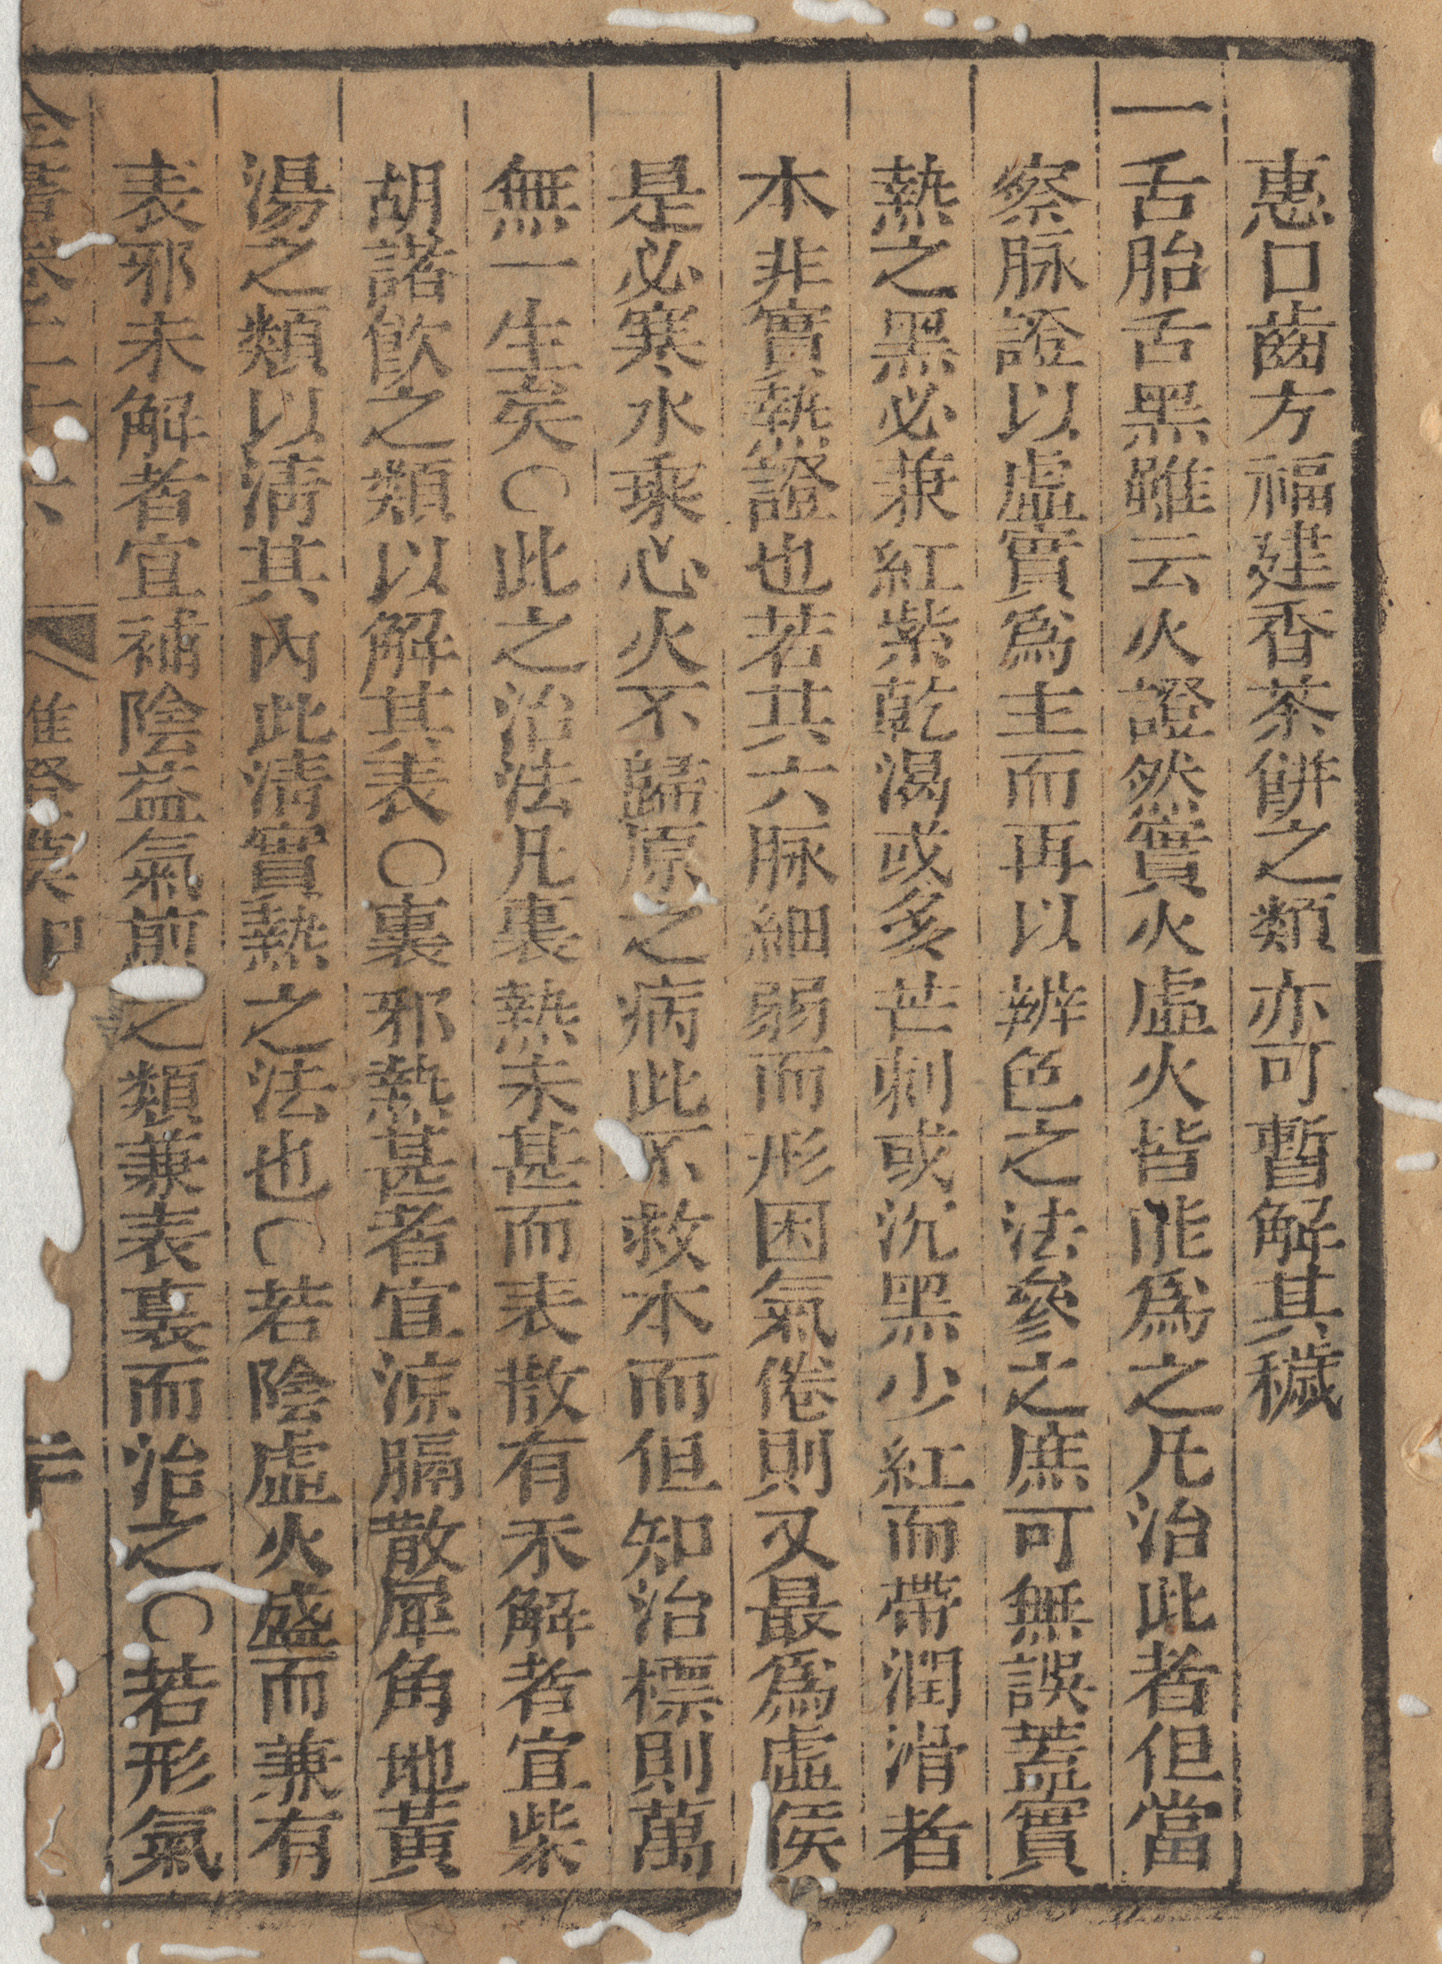 惠口齒方福建香茶餅之類亦可暫解其穢
一舌胎舌黑雖云火證然實火虛火皆能爲之凡治此者但當
察脉證以虛實爲主而再以辨色之法參之庶可無誤蓋實
熱之黑必兼紅紫乾渴或多芒刺或沉黑少紅而帶潤滑者
本非實熱證也若其六脉細弱而形困氣倦則又最爲虛候
是必寒水乘心火不歸原之病此不救本而但知治標則萬
無一生矣○此之治法凡裏熱未甚而表散有未解者宜柴
胡諸飲之類以解其表○裏邪熱甚者宜涼膈散犀角地黃
湯之類以清其內此清實熱之法也○若陰虛火盛而兼有
表邪未解者宜補陰益氣煎之類兼表裏而治之○若形氣
全書卷二十六 雜證謨